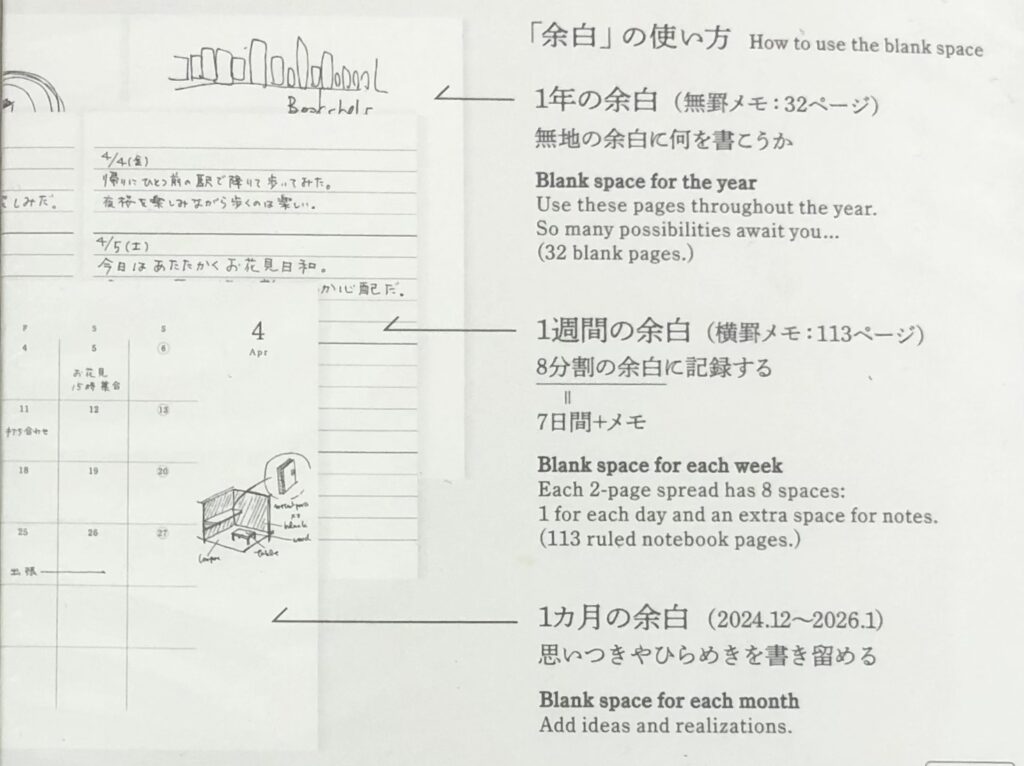 「余白」の使い方 How to use the blank space
1年の余白（無罫メモ：32ページ）
無地の余白に何を書こうか
Blank space for the year
Use these pages throughout the year.
So many possibilities await you...
(32 blank pages.)
1週間の余白（横罫メモ：113ページ）
8分割の余白に記録する
||
7日間+メモ
Blank space for each week
Each 2-page spread has 8 spaces:
1 for each day and an extra space for notes.
(113 ruled notebook pages.)
1カ月の余白（2024.12〜2026.1）
思いつきやひらめきを書き留める
Blank space for each month
Add ideas and realizations.
4/4(金)
帰りにひとつ前の駅で降りて歩いてみた。
夜桜を楽しみながら歩くのは楽しい。
しみだ。
4/5(土)
今日はあたたかくお花見日和。
か心配だ。
4
Apr
F S S
4 5 6
お花見
15時集合
11 12 13
打ち合わせ
18 19 20
25 26 27
出張
table